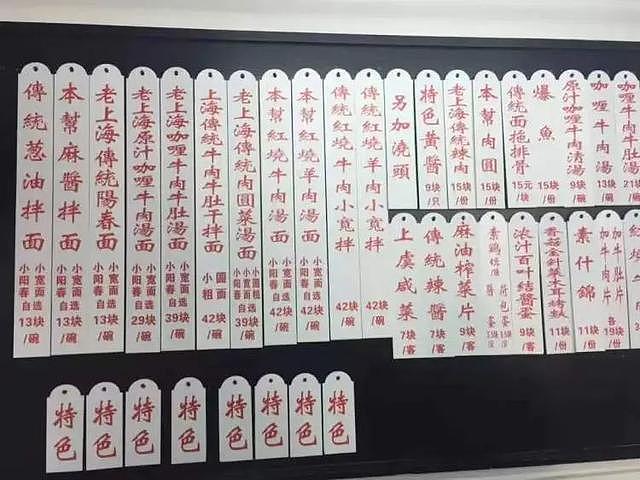 傳統葱油拌面 小宽面 小阳春 自选 13块/碗
本幫麻醬拌面 小宽面 小阳春 自选 13块/碗
老上海傳統陽春面 小宽面 小阳春 自选 13块/碗
老上海原汁咖喱牛肉湯面 小宽面 小阳春 自选 29块/碗
老上海咖喱牛肉牛肚湯面 小宽面 小阳春 自选 39块/碗
上海傳統牛肉牛肚干拌面 圆面 小粗 42块/碗
老上海傳統肉圓菜湯面 小圆粗 小宽面 小阳春 自选 39块/碗
本幫紅燒牛肉湯面 小宽面 小阳春 自选 42块/碗
本幫紅燒羊肉湯面 小宽面 小阳春 自选 42块/碗
傳統紅燒牛肉小寬拌 42块/碗
傳統紅燒羊肉小寬拌 42块/碗
另加澆頭
特色黃醬 9块/只
老上海傳統辣肉 15块/份
本幫肉圓 15块/份
傳統面拖排骨 15元/块
爆魚 15块/份
原汁咖喱牛肉清湯 9块/碗
咖喱牛肉湯 13块/碗
咖喱牛肉牛肚湯
上虞咸菜 7块/客
傳統辣醬 7块/客
麻油榨菜片 9块/客
浓汁百叶结醬蛋 9块/客
香菇金針菜木耳烤麩 11块/份
素什錦 11块/份
加牛肉片 加牛肚片 各19块/份
特色
特色
特色
特色
特色
特色
特色
特色